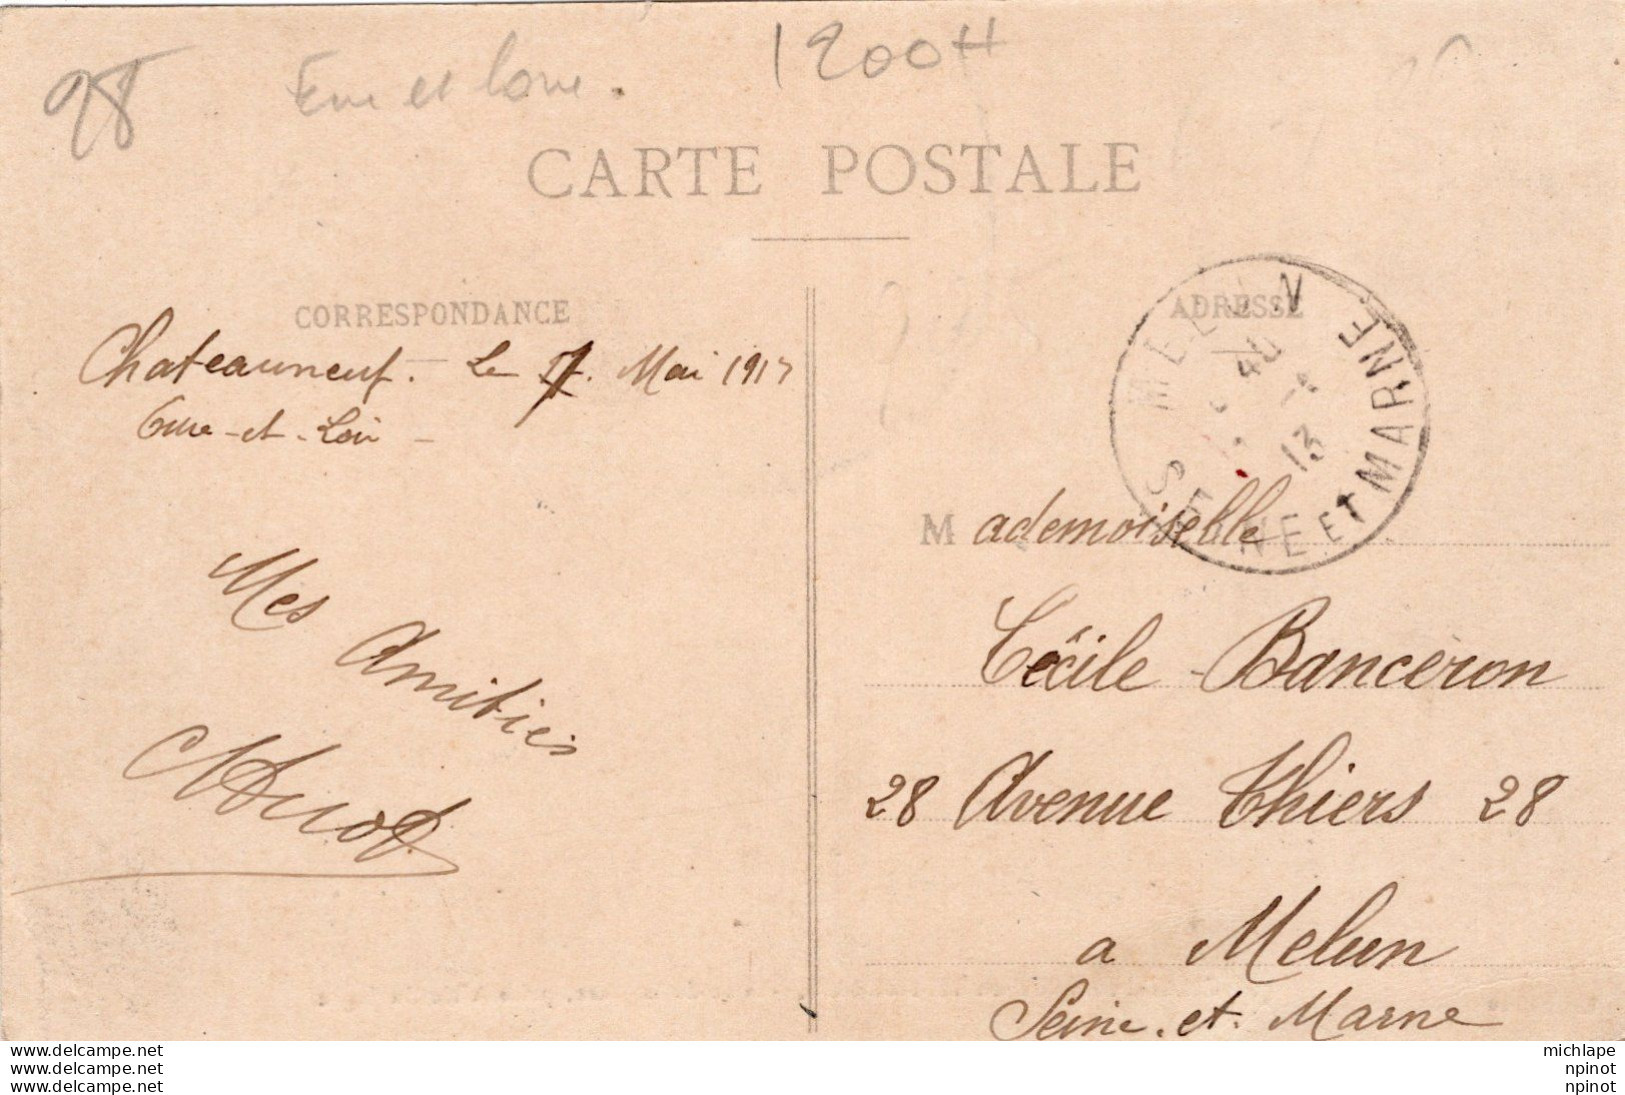 98
Eure et Loire.
1200H
CARTE POSTALE
CORRESPONDANCE
ADRESSE
MELUN
40
13
SEINE ET MARNE
Chateauneuf. - Le 7. Mai 1913
Eure-et-Loir -
Mes Amitiés
Mademoiselle
Cécile Banceron
28 Avenue Thiers 28
a Melun
Seine.et.Marne
www.delcampe.net
www.delcampe.net
www.delcampe.net
michlape
npinot
npinot